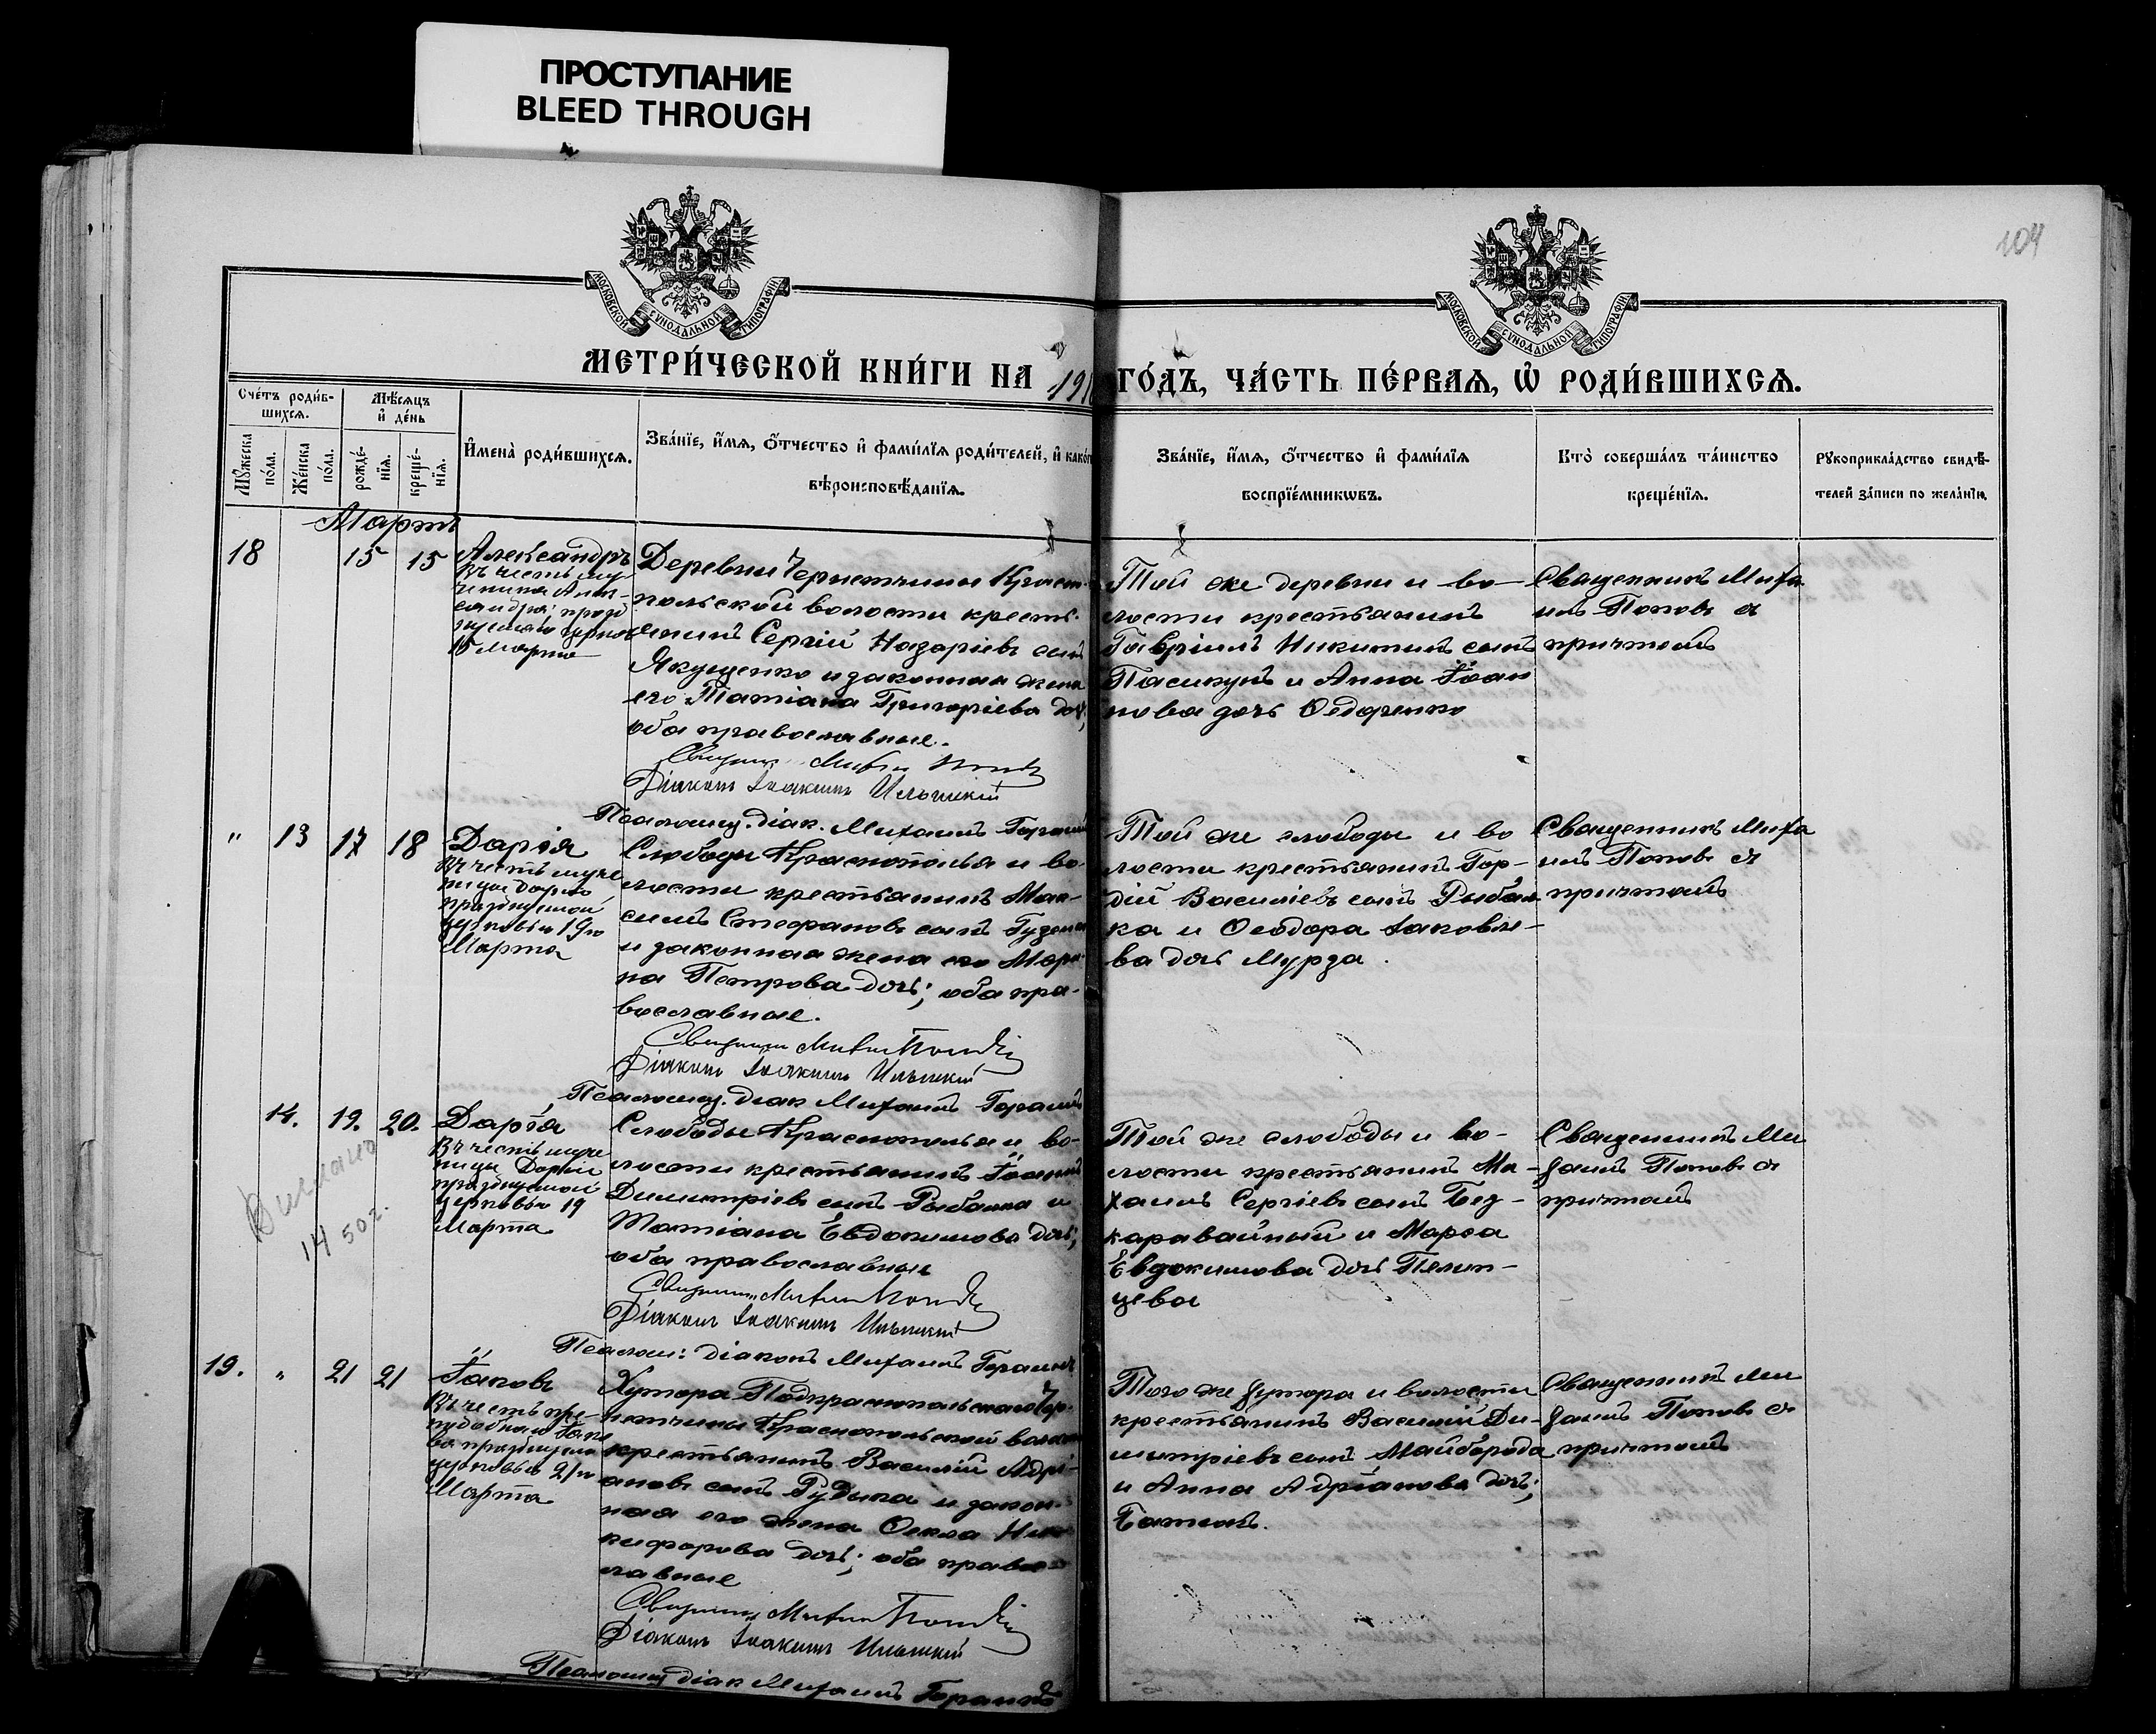 ПРОСТУПАНИЕ
BLEED THROUGH
104
МОСКОВСКОЙ СѴНОДАЛЬНОЙ ТИПОГРАФІИ
МОСКОВСКОЙ СѴНОДАЛЬНОЙ ТИПОГРАФІИ
МЕТРИ́ЧЕСКОЙ КНИ́ГИ НА 191
ГО́ДЪ, ЧА́СТЬ ПЕ́РВАЯ, Ѡ҆ РОДИ́ВШИХСЯ.
Сче́тъ роди́в-
шихся.
Мѣ́сяцъ
и҆ де́нь
Мꙋ́жеска
по́ла.
Же́нска
по́ла.
рожде́-
нїя.
креще́-
нїя.
И҆мена̀ роди́вшихся.
Зва́нїе, и҆́мя, ѻ҆́тчество и҆ фами́лїя роди́телей, и҆ како́г
вѣроисповѣ́данїя.
Зва́нїе, и҆́мя, ѻ҆́тчество и҆ фами́лїя
воспрїе́мникѡвъ.
Кто̀ соверша́лъ та́инство
креще́нїя.
Рꙋкоприкла́дство свидѣ́-
телей за́писи по жела́нїю.
Мартъ
18
15
15
Александръ
Въ честь му-
ченика Алек-
сандра, празд
нуемаго церков
15 Марта
Деревни Чернетчины Красно-
польской волости кресть-
янинъ Сергій Назаріевъ сынъ
Якущенко и законная жена
его Татіана Григоріева дочь;
оба православные.
Діаконъ Іоакимъ Ильницкій
Псаломщ. діак. Михаилъ Гораинъ
Той же деревни и во-
лости крестьянинъ
Гавріилъ Никитинъ сынъ
Пасикунъ и Анна Іоан
нова дочь Ѳедоренко
Священникъ Миха
илъ Поповъ съ
причтомъ
"
13
17
18
Дарія
Въ честь муче
ницы Даріи
празднуемой
церковью 19го
Марта
Слободы Краснополья и во-
лости крестьянинъ Мак-
симъ Стефановъ сынъ
и законная жена его Мари-
на Петрова дочь; оба пра-
вославные.
Діаконъ Іоакимъ Ильницкій
Псаломщ. діак Михаилъ Гораинъ
Той же слободы и во
лости крестьянинъ Гор-
дій Василіевъ сынъ Рыбал
ка и Ѳеодора Іаковле-
ва дочь Мурза.
Священникъ Миха
илъ Поповъ съ
причтомъ
14.
19.
20.
Дарія
Въ честь муче
ницы Даріи
празднуемой
церковью 19
Марта
14 50 г.
Слободы Краснополья и во-
лости крестьянинъ Іоаннъ
Димитріевъ сынъ Рыбалка и
Татіана Евдокимова дочь;
оба православные
Діаконъ Іоакимъ Ильницкій
Псалом: діаконъ Михаилъ Гораинъ
Той же слободы и во-
лости крестьянинъ Ми-
хаилъ Сергіевъ сынъ Без-
каравайный и Марѳа
Евдокимова дочь Пелип-
цева
Священникъ Ми
хаилъ Поповъ съ
причтомъ
19.
"
21
21
Іаковъ
Въ честь пре-
подобнаго Іако
ва празднуема
церковью 21го
Марта
Хутора Подкраснопольской Чер-
нетчины Краснопольской волости
крестьянинъ Василій Адрі-
ановъ сынъ Рудыка и закон-
ная его жена Ѳекла Ни-
кифорова дочь; оба право-
славные
Діаконъ Іоакимъ Ильницкій
Псаломщ діак Михаилъ Гораинъ
Того же хутора и волости
крестьянинъ Василій Ди-
митріевъ сынъ Майборода
и Анна Адріанова дочь;
Батюкъ.
Священникъ Ми
хаилъ Поповъ съ
причтомъ